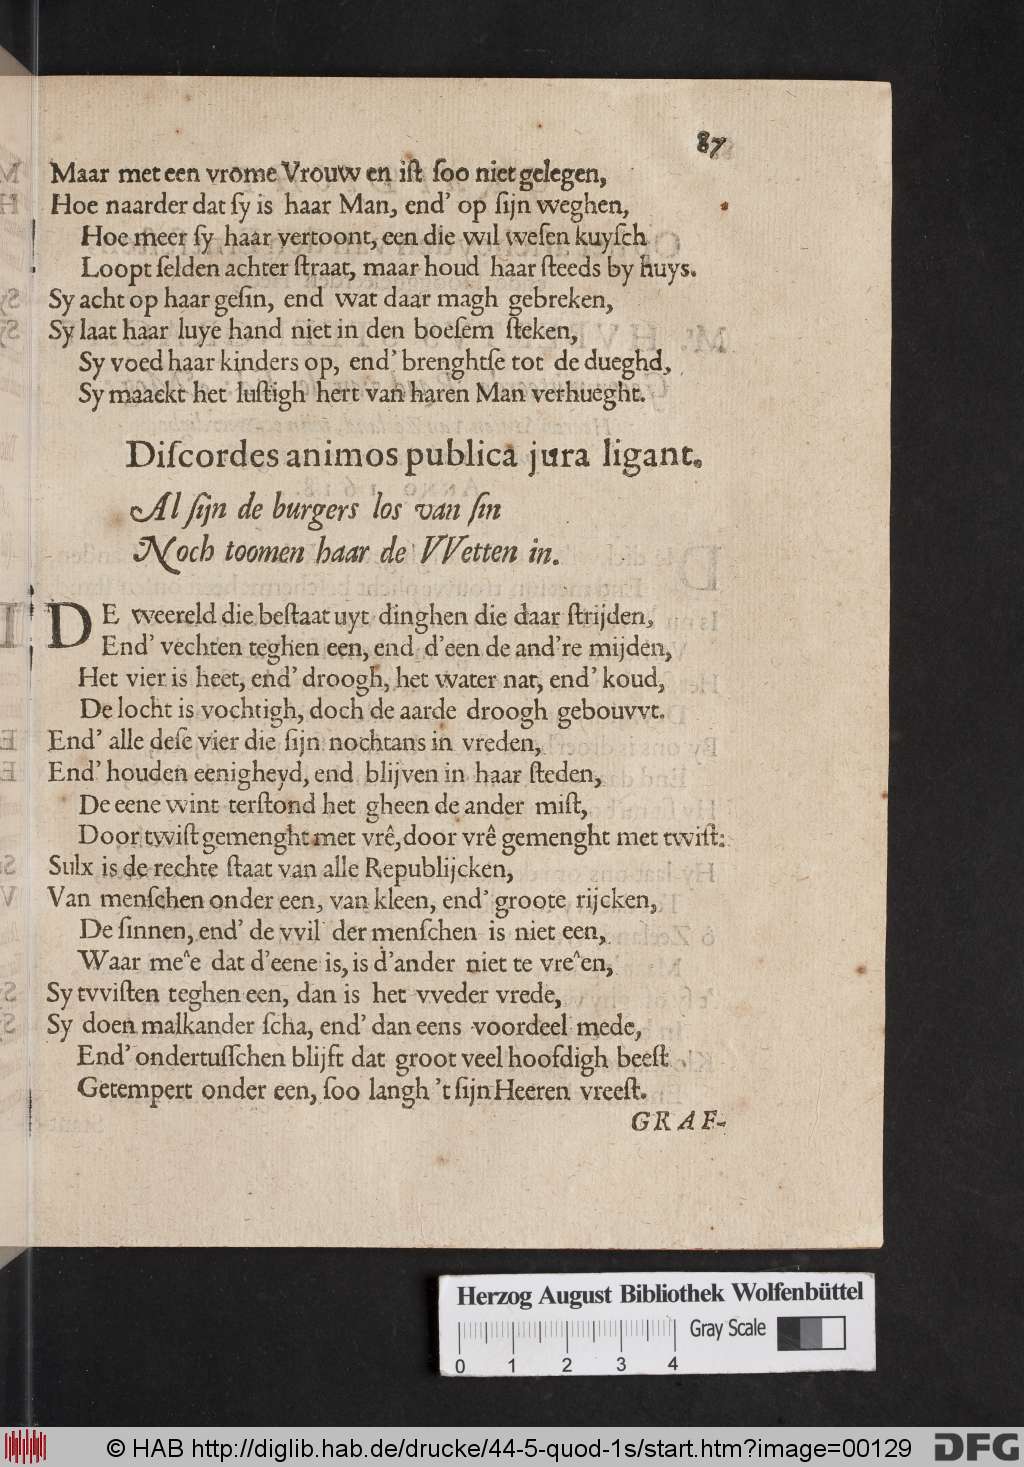 87
Maar met een vrome Vrouw en iſt ſoo niet gelegen,
Hoe naarder dat ſy is haar Man, end' op ſijn weghen,
Hoe meer ſy haar vertoont, een die wil weſen kuyſch
Loopt ſelden achter ſtraat, maar houd haar ſteeds by huys.
Sy acht op haar geſin, end wat daar magh gebreken,
Sy laat haar luye hand niet in den boeſem ſteken,
Sy voed haar kinders op, end' brenghtſe tot de dueghd,
Sy maackt het luſtigh hert van haren Man verhueght.
Diſcordes animos publica jura ligant.
Al ſijn de burgers los van ſin
Noch toomen haar de VVetten in.
DE weereld die beſtaat uyt dinghen die daar ſtrijden,
End' vechten teghen een, end d'een de and're mijden,
Het vier is heet, end' droogh, het water nat, end' koud,
De locht is vochtigh, doch de aarde droogh gebouvvt.
End' alle deſe vier die ſijn nochtans in vreden,
End' houden eenigheyd, end blijven in haar ſteden,
De eene wint terſtond het gheen de ander miſt,
Door twiſt gemenght met vrê, door vrê gemenght met twiſt:
Sulx is de rechte ſtaat van alle Republijcken,
Van menſchen onder een, van kleen, end' groote rijcken,
De ſinnen, end' de vvil der menſchen is niet een,
Waar me^e dat d'eene is, is d'ander niet te vre^en,
Sy tvviſten teghen een, dan is het vveder vrede,
Sy doen malkander ſcha, end' dan eens voordeel mede,
End' ondertuſſchen blijft dat groot veel hoofdigh beeſt
Getempert onder een, ſoo langh 't ſijn Heeren vreeſt.
GRAF-
Herzog August Bibliothek Wolfenbüttel
Gray Scale
0 1 2 3 4
© HAB http://diglib.hab.de/drucke/44-5-quod-1s/start.htm?image=00129
DFG